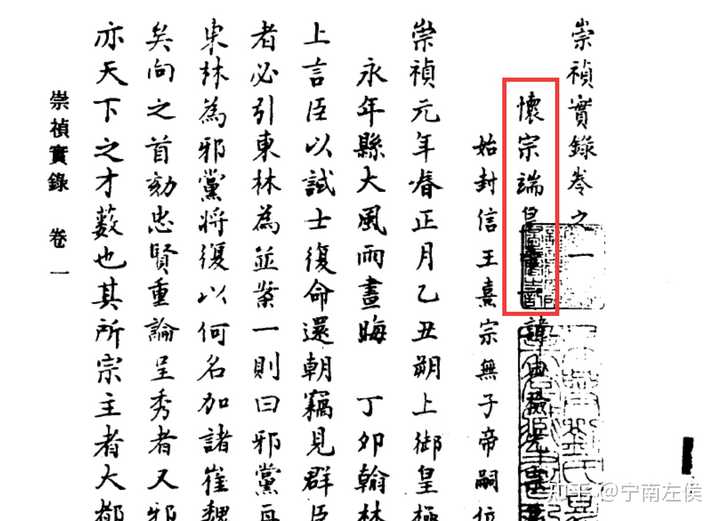 崇禎實錄卷之一
懷宗端皇帝
諱由檢光宗
始封信王熹宗無子帝嗣位
崇禎元年春正月乙丑朔上御皇極
永年縣大風雨晝晦 丁卯翰林
上言臣以試士復命還朝竊見群臣
者必引東林為並案一則曰邪黨再
東林為邪黨將復以何名加諸崔魏
矣向之首劾忠賢重論呈秀者又邪
亦天下之才藪也其所宗主者大都
崇禎實錄 卷一
知乎 @宁南左侯